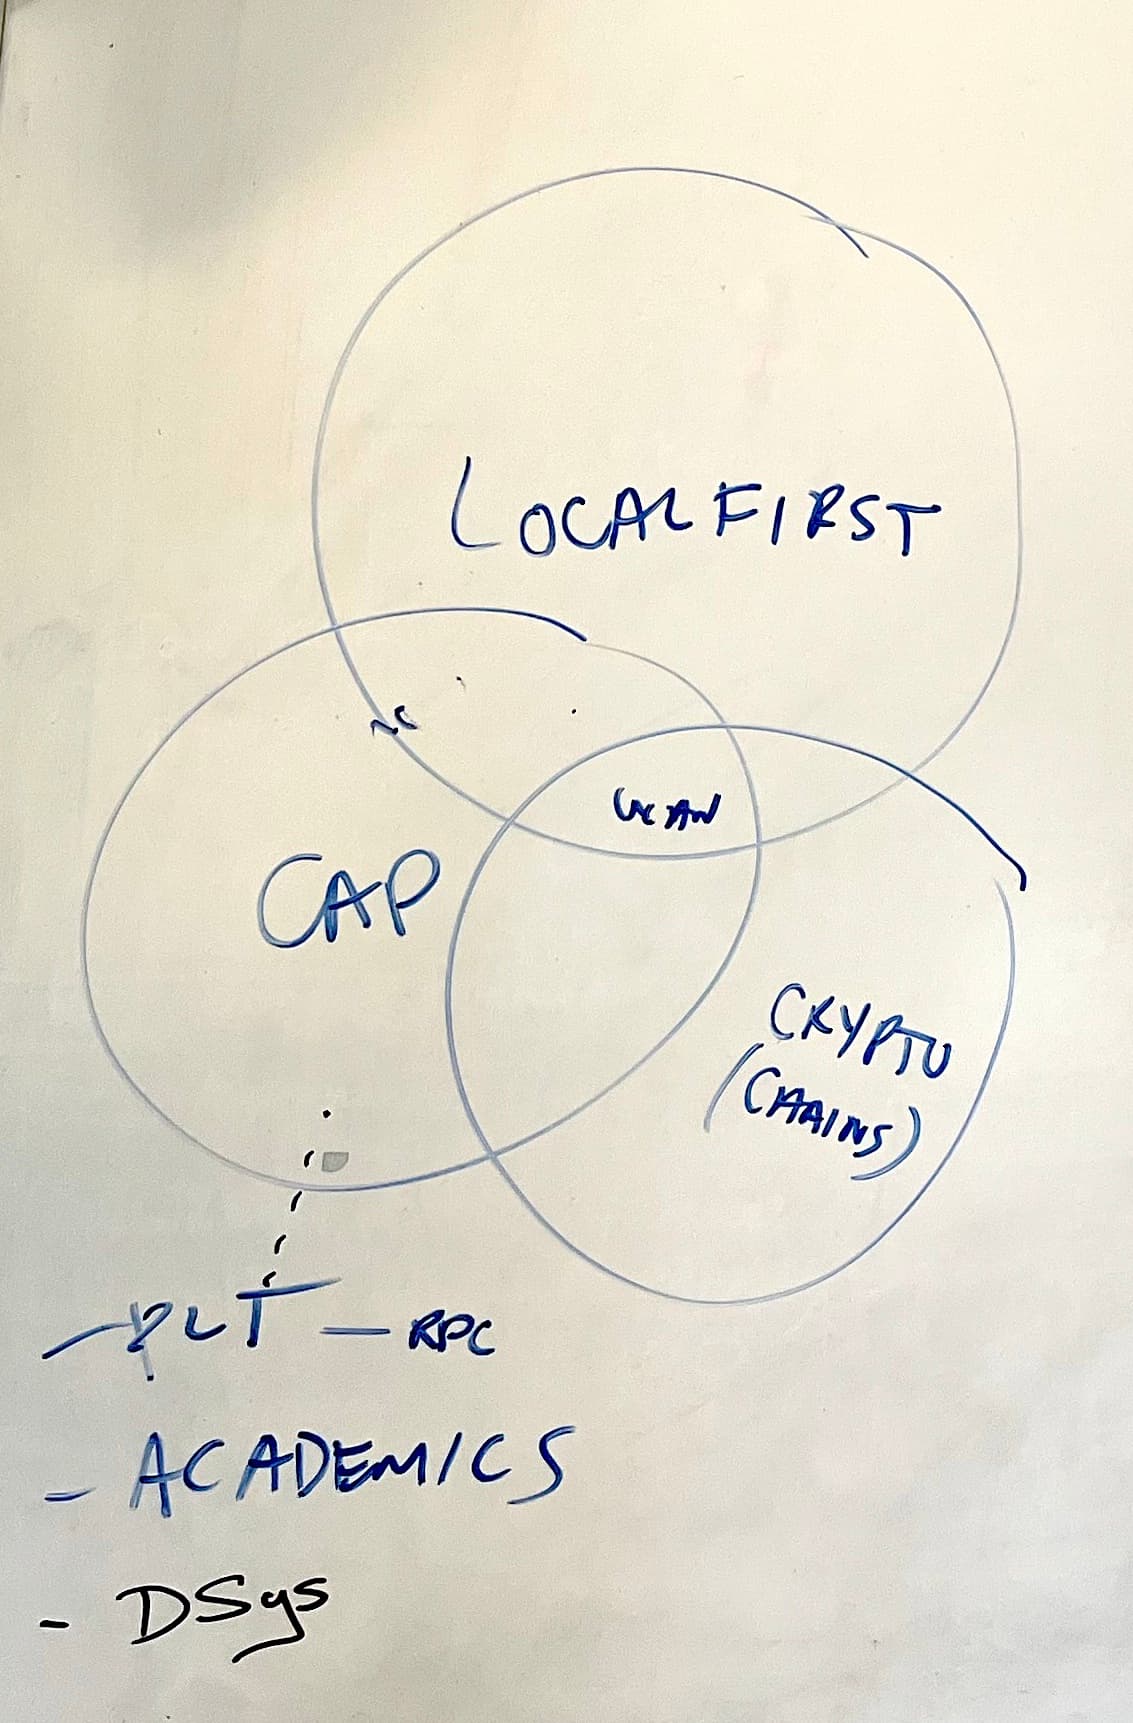 LOCALFIRST
UCAN
CAP
CRYPTO
(CHAINS)
- PLT - RPC
- ACADEMICS
- DSys